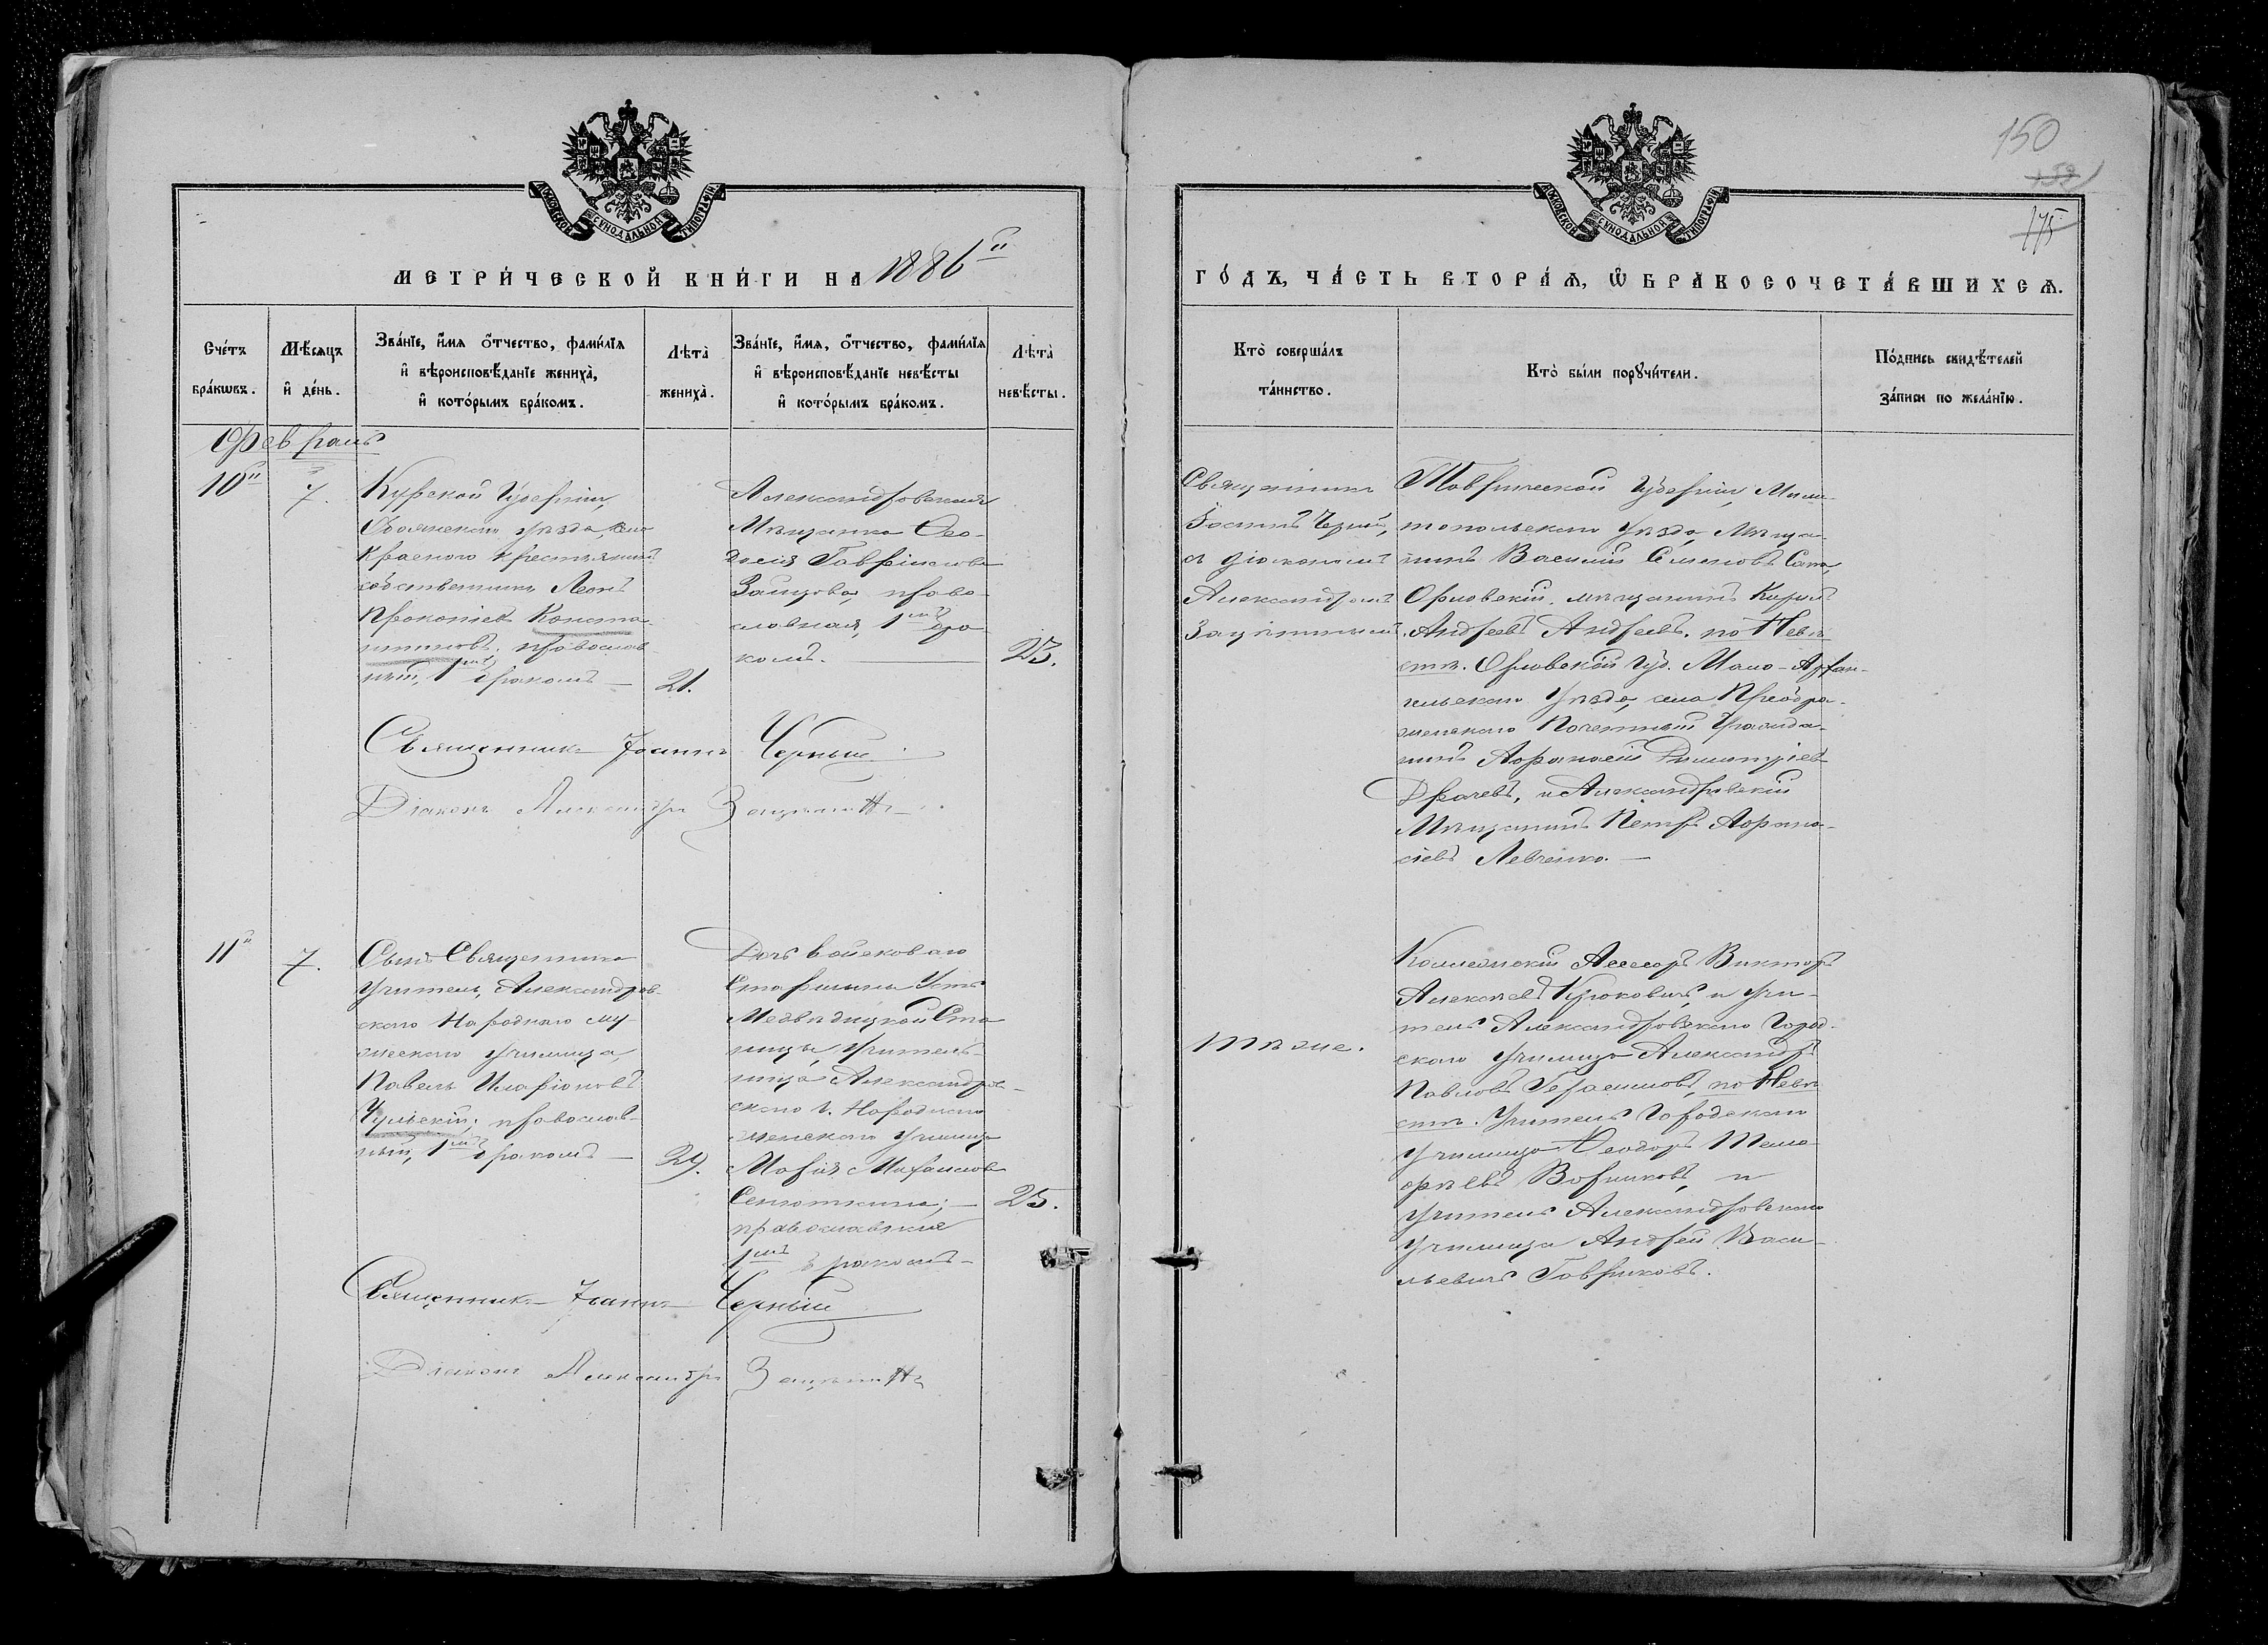 МОСКОВСКОЙ СѴНОДАЛЬНОЙ ТИПОГРАФІИ
МЕТРИ́ЧЕСКОЙ КНИ́ГИ НА 1886й
Сче́тъ бра́кѡвъ.
Мѣ́сяцъ и҆ де́нь.
Зва́нїе, и҆́мя ѻ҆́тчество, фами́лїя
и҆ вѣроисповѣ́данїе жениха̀,
и҆ кото́рымъ бра́комъ.
Лѣта̀ жениха̀.
Зва́нїе, и҆́мя, ѻ҆́тчество, фами́лїя
и҆ вѣроисповѣ́данїе невѣ́сты
и҆ кото́рымъ бра́комъ.
Лѣта̀ невѣ́сты.
Февраль
10й
7.
Курской Губерніи,
Обоянскаго уѣзда, села
Красного Крестьянинъ
собственникъ Леонъ
Прокопіев Конста-
тиновъ, православ-
ный, 1мъ бракомъ —
21.
Александровская
Мѣщанка Ѳео-
досія Гавріилова
Зайцова, право-
славная, 1мъ бра-
комъ. —
23.
Священникъ Іоаннъ Черный
Діаконъ Александръ
11й
7.
Сынъ Священника
Учитель, Александров-
скаго Народнаго му-
жескаго училища,
Павелъ Иларіоновъ
православ-
ный, 1мъ бракомъ —
29.
Дочь войсковаго
Старшины Усть
Медвѣдицкой Ста
ницы Учитель-
ница Александров-
скаго г. Народнаго
женскаго училища
Марія Михаилова
Сенюткина; —
православная
1мъ бракомъ —
25.
Священникъ Іоаннъ Черный
Діаконъ Александръ
150
175
МОСКОВСКОЙ СѴНОДАЛЬНОЙ ТИПОГРАФІИ
ГО́ДЪ, ЧА́СТЬ ВТОРА́Ѧ, Ѡ҆ БРАКОСОЧЕТА́ВШИХСѦ.
Кто̀ соверша́лъ та́инство.
Кто̀ бы́ли порꙋчи́тели.
По́дпись свидѣ́телей за́писи по жела́нїю.
Священникъ
Іоаннъ Черный,
съ діакономъ
Александромъ
Таврической Губерніи, Мели-
топольскаго уѣзда, Мѣща-
нинъ Василій Семеновъ
Орловскій, мѣщанинъ Кирилъ
Андреевъ Андреевъ. по Невѣ-
стѣ. Орловской Губ. Мало-Архан-
гельскаго Уѣзда, села Преобра-
женскаго Почетный Гражда-
нинъ Афанасій Димитріев
Драчевъ, и Александровскій
Мѣщанинъ Петръ Афана-
сіевъ Левченко. —
тѣ же.
Коллежскій Асессоръ Викторъ
Алексѣевъ и Учи-
тель Александровскаго Город-
скаго училища Александръ
Павловъ Герасимовъ, по Невѣ
стѣ. Учитель Городскаго
училища Ѳеодоръ Тимо
фѣевъ Воршковъ, и
Учитель Александровскаго
Училища Андрей Васи-
льевичъ Гавриковъ.